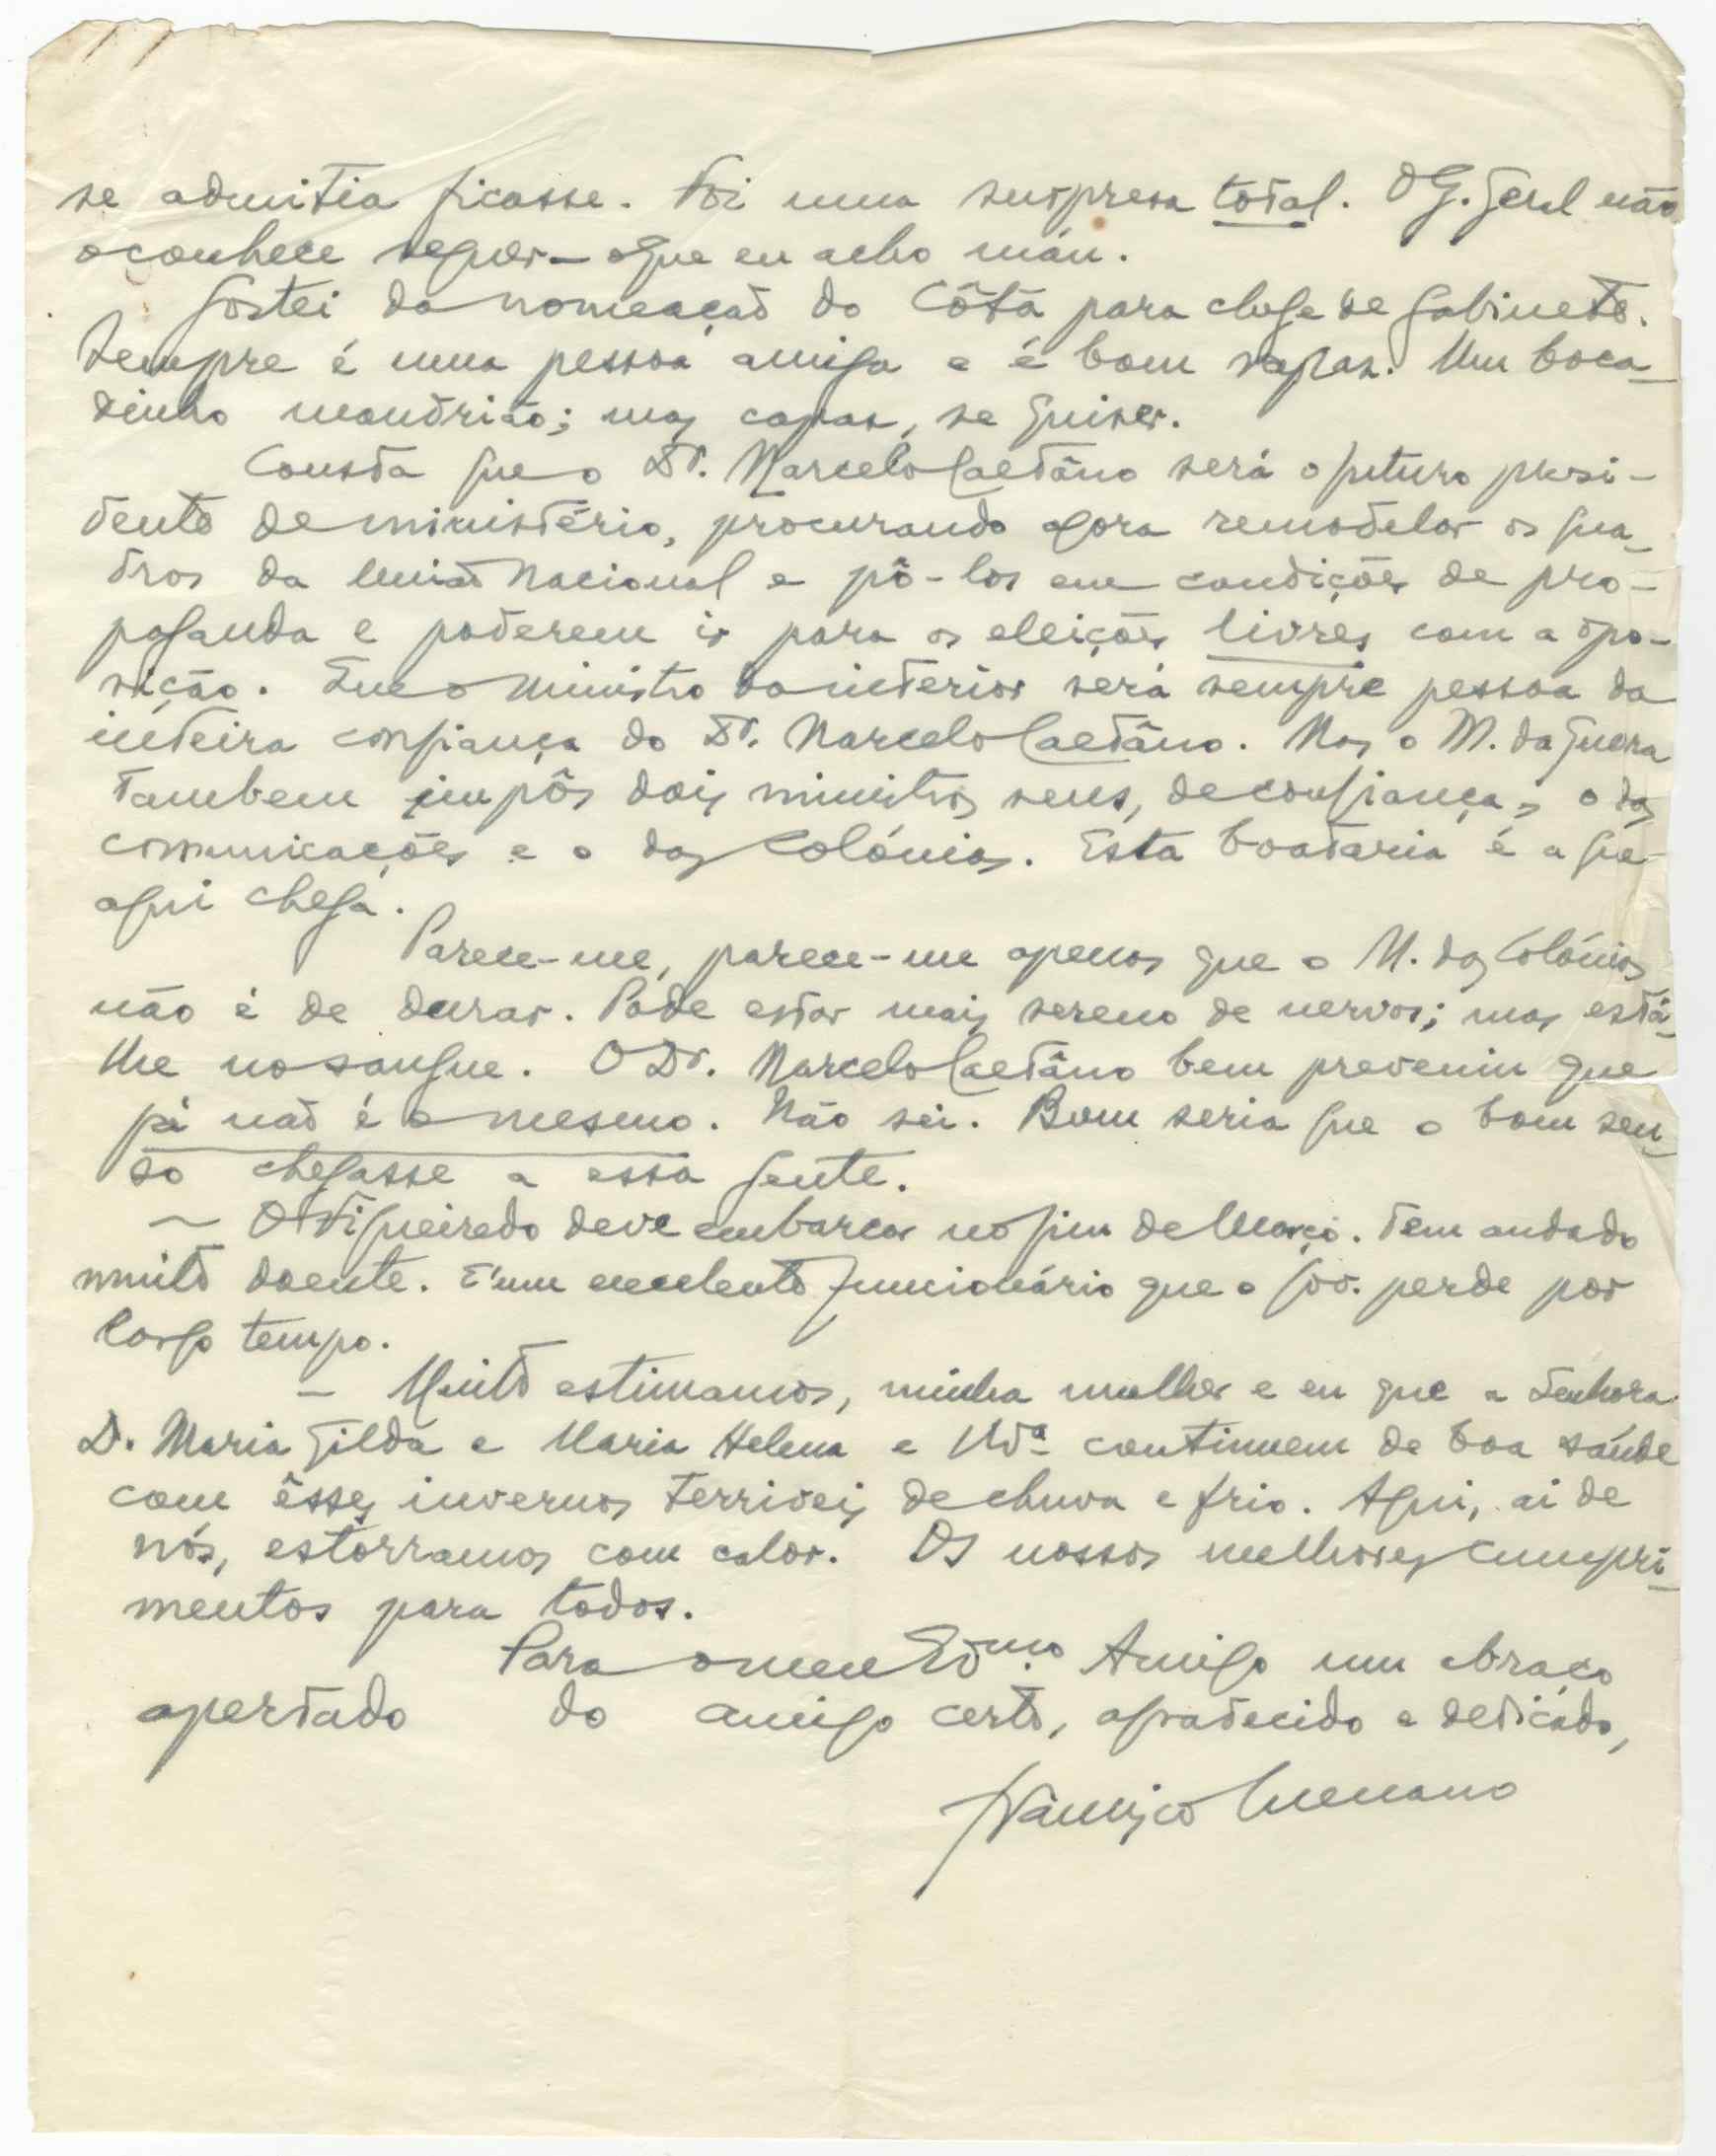 se admitia ficasse. Foi uma surpresa total. O G. Geral não
o conhece sequer — o que eu acho máu.
Gostei da nomeação do Côta para chefe de gabinete.
Sempre é uma pessoa amiga e é bom rapaz. Um boca-
dinho mandrião; mas capaz, se quiser.
Consta que o Dr. Marcelo Caetâno será o futuro presi-
dente de ministério, procurando agora remodelar os qua-
dros da União Nacional e pô-los em condições de pro-
paganda e poderem ir para as eleições livres com a opo-
sição. Que o Ministro do interior será sempre pessoa da
inteira confiança do Dr. Marcelo Caetâno. Mas o M. da Guerra
tambem impôs dois ministros seus, de confiança, o das
comunicações e o das Colónias. Esta boataria é a que
aqui chega.
Parece-me, parece-me apenas que o M. das Colónias
não é de durar. Pode estar mais sereno de nervos; mas está-
lhe no sangue. O Dr. Marcelo Caetâno bem preveniu que
já não é o mesmo. Não sei. Bom seria que o bom sen-
so chegasse a essa gente.
— O Figueiredo deve embarcar no fim de Março. Tem andado
muito doente. É um excelente funcionário que o Gov. perde por
largo tempo.
— Muito estimamos, minha mulher e eu que a Senhora
D. Maria Gilda e Maria Helena e continuem de boa saúde
com êsses invernos terriveis de chuva e frio. Aqui, ai de
nós, estorramos com calor. Os nossos melhores cumpri-
mentos para todos.
Para o meu Amigo um abraço
apertado do amigo certo, agradecido e dedicado,